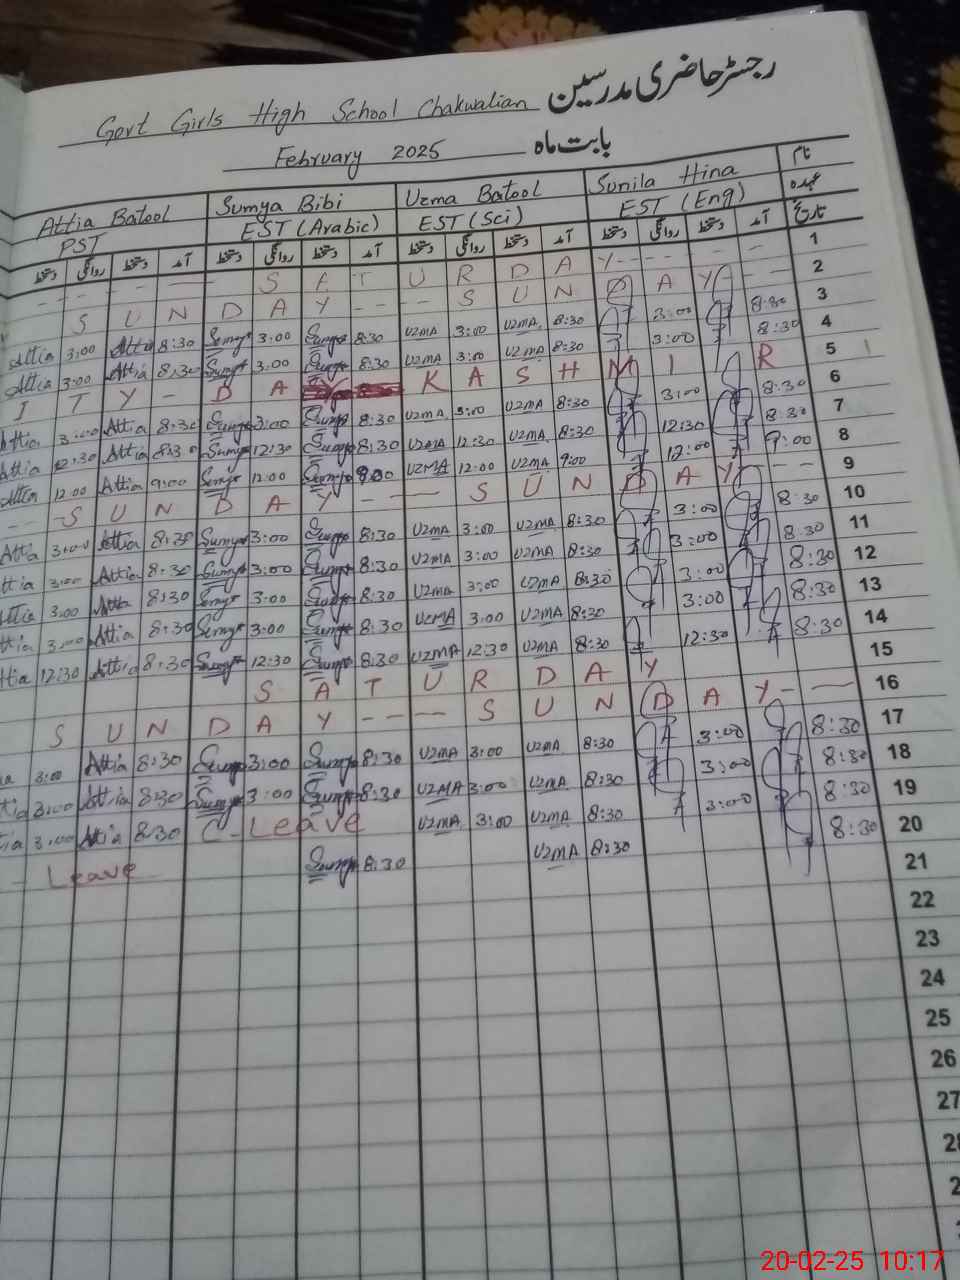 رجسٹر حاضری مدرسین Govt Girls High School Chakwalian
بابت ماہ February 2025
Attia Batool Sumya Bibi Uzma Batool Sunila Hina نام
PST EST (Arabic) EST (Sci) EST (Eng) عہدہ
دستخط روانگی دستخط آمد دستخط روانگی دستخط آمد دستخط روانگی دستخط آمد دستخط روانگی دستخط آمد تاریخ
S A T U R D A Y - - - - 1
S U N D A Y - - - S U N D A Y - - 2
Attia 3:00 Attia 8:30 Sumya 3:00 Sumya 8:30 UZMA 3:00 UZMA 8:30 3:00 8:30 3
Attia 3:00 Attia 8:30 Sumya 3:00 Sumya 8:30 UZMA 3:00 UZMA 8:30 3:00 8:30 4
I T Y - D A Y K A S H M I R 5
Attia 3:00 Attia 8:30 Sumya 3:00 Sumya 8:30 UZMA 3:00 UZMA 8:30 3:00 8:30 6
Attia 12:30 Attia 8:30 Sumya 12:30 Sumya 8:30 UZMA 12:30 UZMA 8:30 12:30 8:30 7
Attia 12:00 Attia 9:00 Sumya 12:00 Sumya 9:00 UZMA 12:00 UZMA 9:00 12:00 9:00 8
- - S U N D A Y - - - S U N D A Y - - 9
Attia 3:00 Attia 8:30 Sumya 3:00 Sumya 8:30 UZMA 3:00 UZMA 8:30 3:00 8:30 10
ttia 3:00 Attia 8:30 Sumya 3:00 Sumya 8:30 UZMA 3:00 UZMA 8:30 3:00 8:30 11
Attia 3:00 Attia 8:30 Sumya 3:00 Sumya 8:30 UZMA 3:00 UZMA 8:30 3:00 8:30 12
ttia 3:00 Attia 8:30 Sumya 3:00 Sumya 8:30 UZMA 3:00 UZMA 8:30 3:00 8:30 13
ttia 12:30 Attia 8:30 Sumya 12:30 Sumya 8:30 UZMA 12:30 UZMA 8:30 12:30 8:30 14
S A T U R D A Y 15
S U N D A Y - - - S U N D A Y - - 16
ia 3:00 Attia 8:30 Sumya 3:00 Sumya 8:30 UZMA 3:00 UZMA 8:30 3:00 8:30 17
tia 3:00 Attia 8:30 Sumya 3:00 Sumya 8:30 UZMA 3:00 UZMA 8:30 3:00 8:30 18
tia 3:00 Attia 8:30 C-Leave UZMA 3:00 UZMA 8:30 3:00 8:30 19
- Leave Sumya 8:30 UZMA 8:30 8:30 20
21
22
23
24
25
26
27
20-02-25 10:17